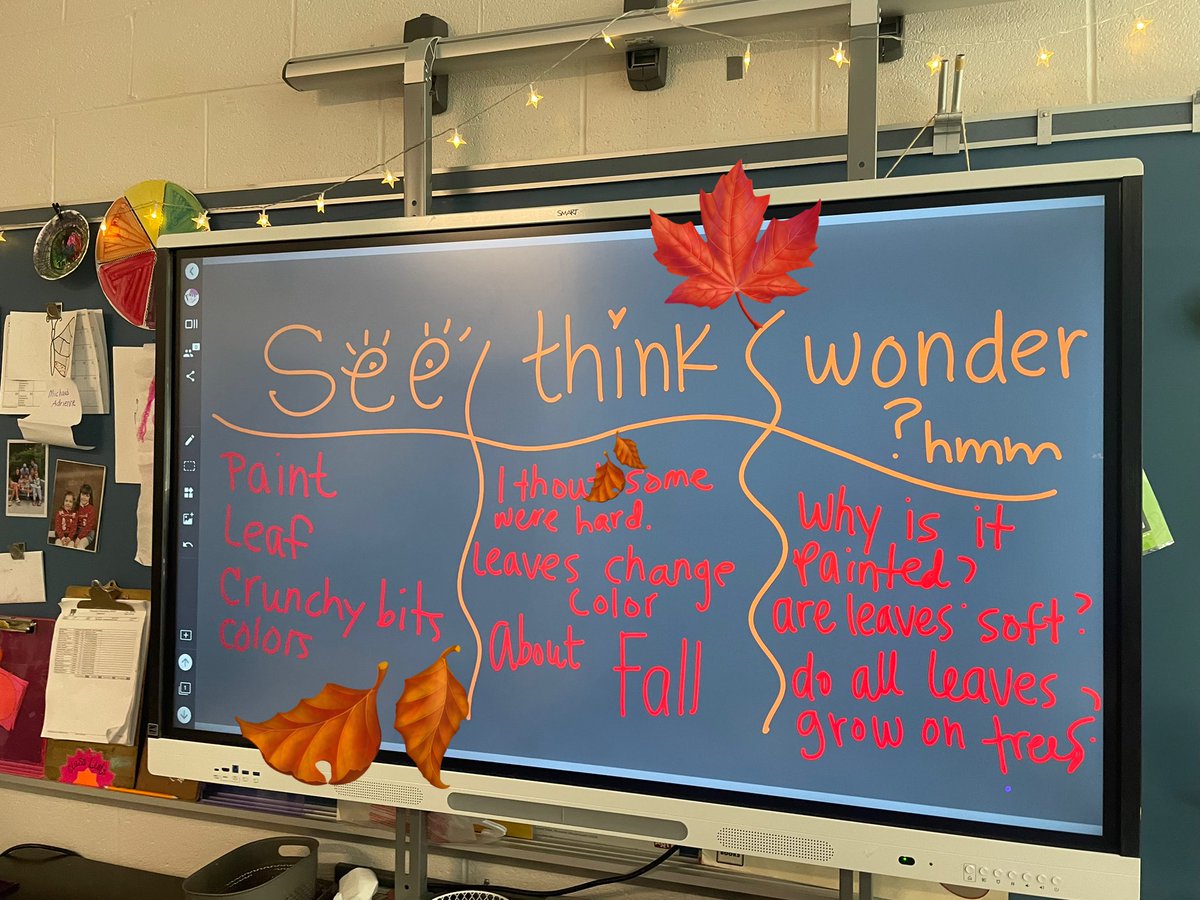 SMART
See
think
wonder
? hmm
Paint
Leaf
Crunchy bits
colors
I thout some
were hard.
Leaves change
color
About Fall
Why is it
painted?
are leaves soft?
do all leaves
grow on trees?
Michael
Adrienne